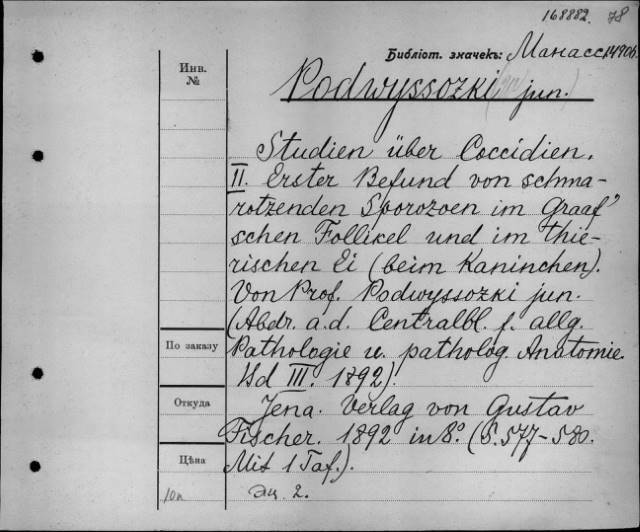 168882. 78
Библіот. значекъ: Манасс. 14906.
Инв.
№
Podwyssozki jun.
Studien über Coccidien.
II. Erster Befund von schma-
rotzenden Sporozoen im Graaf'
schen Follikel und im thie-
rischen Ei (beim Kaninchen).
Von Prof. Podwyssozki jun.
(Abdr. a. d. Centralbl. f. allg.
По заказу
Pathologie u. patholog. Anatomie.
Bd III. 1892).
Откуда
Jena. Verlag von Gustav
Fischer. 1892 in 8.° (S. 577-580.
Цѣна
Mit 1 Taf.).
эц. 2.